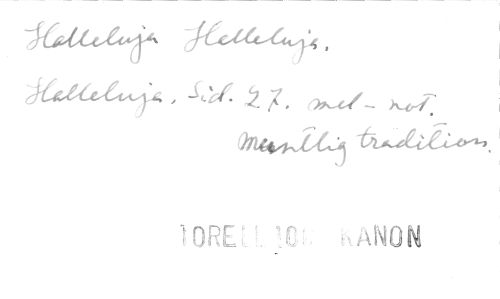 Halleluja Halleluja.
Halleluja. Sid. 27. mel-not.
muntlig tradition.
KANON